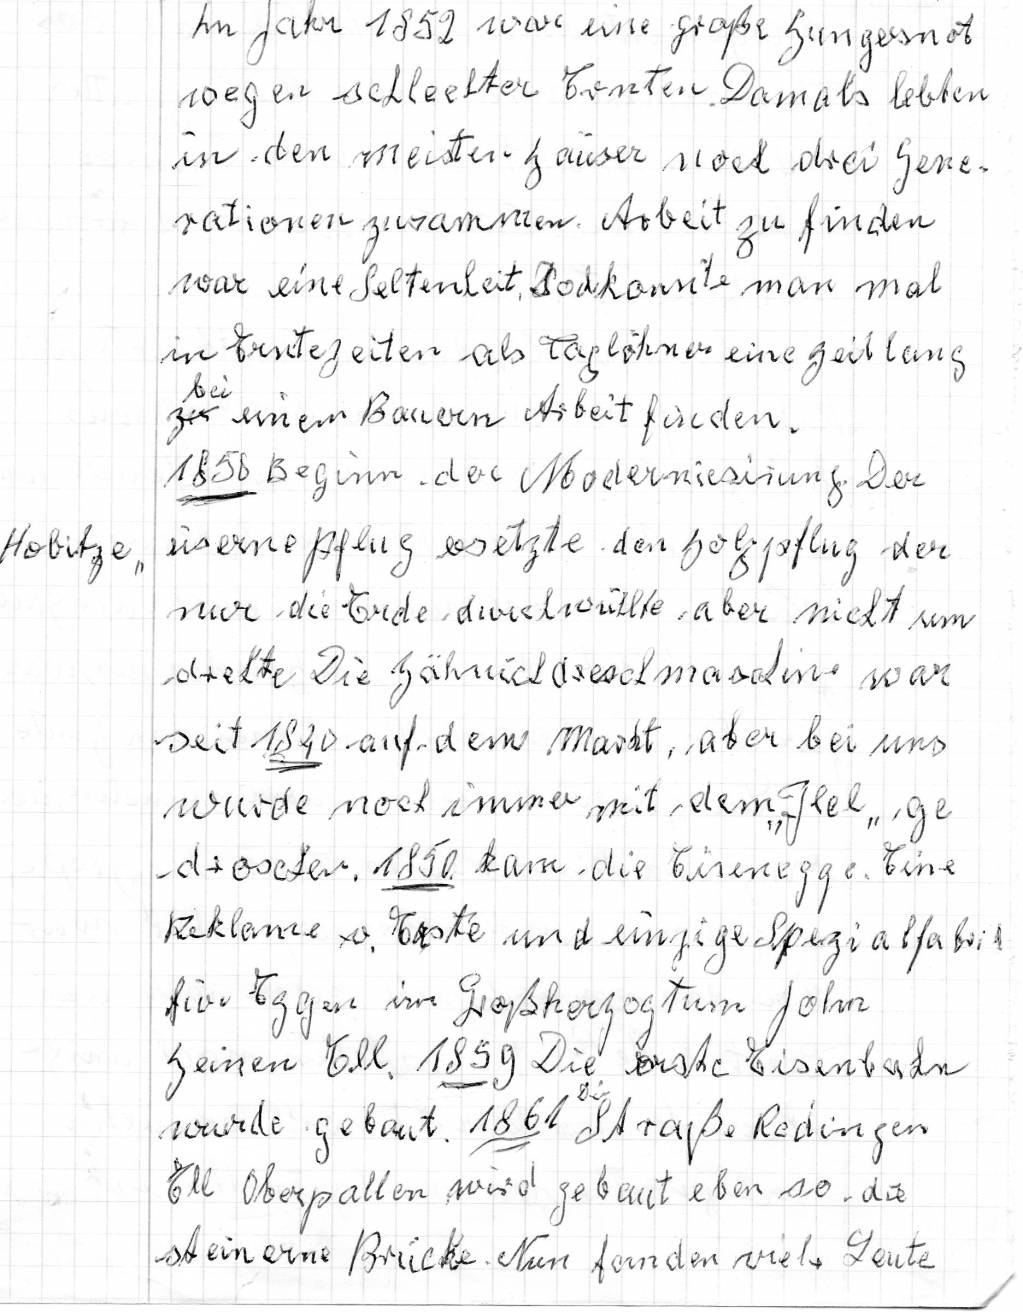 Im Jahr 1852 war eine große Hungersnot
wegen schlechter Ernten. Damals lebten
in den meisten Häuser noch drei Gene-
rationen zusammen. Arbeit zu finden
war eine Seltenheit, man mal
in Erntezeiten als Taglöhner eine Zeit lang
bei
einem Bauern Arbeit finden.
1858 Beginn der Moderniesirung. Der
Hobitze„ eiserne Pflug ersetzte den Holzpflug der
nur die Erde durchwühlte aber nicht um
drehte Die Dreschmaschine war
seit 1840 auf dem Markt, aber bei uns
wurde noch immer mit dem „Flel„ ge
droschen. 1850 kam die Eisenegge. Eine
Reklame v. Erste und einzige Spezialfabrik
für Eggen im Großherzogtum John
Heinen Ell. 1859 Die erste Eisenbahn
wurde gebaut. 1861 Die Straße Redingen
Ell Oberpallen wird gebaut eben so die
steinerne Brücke. Nun fanden viele Leute